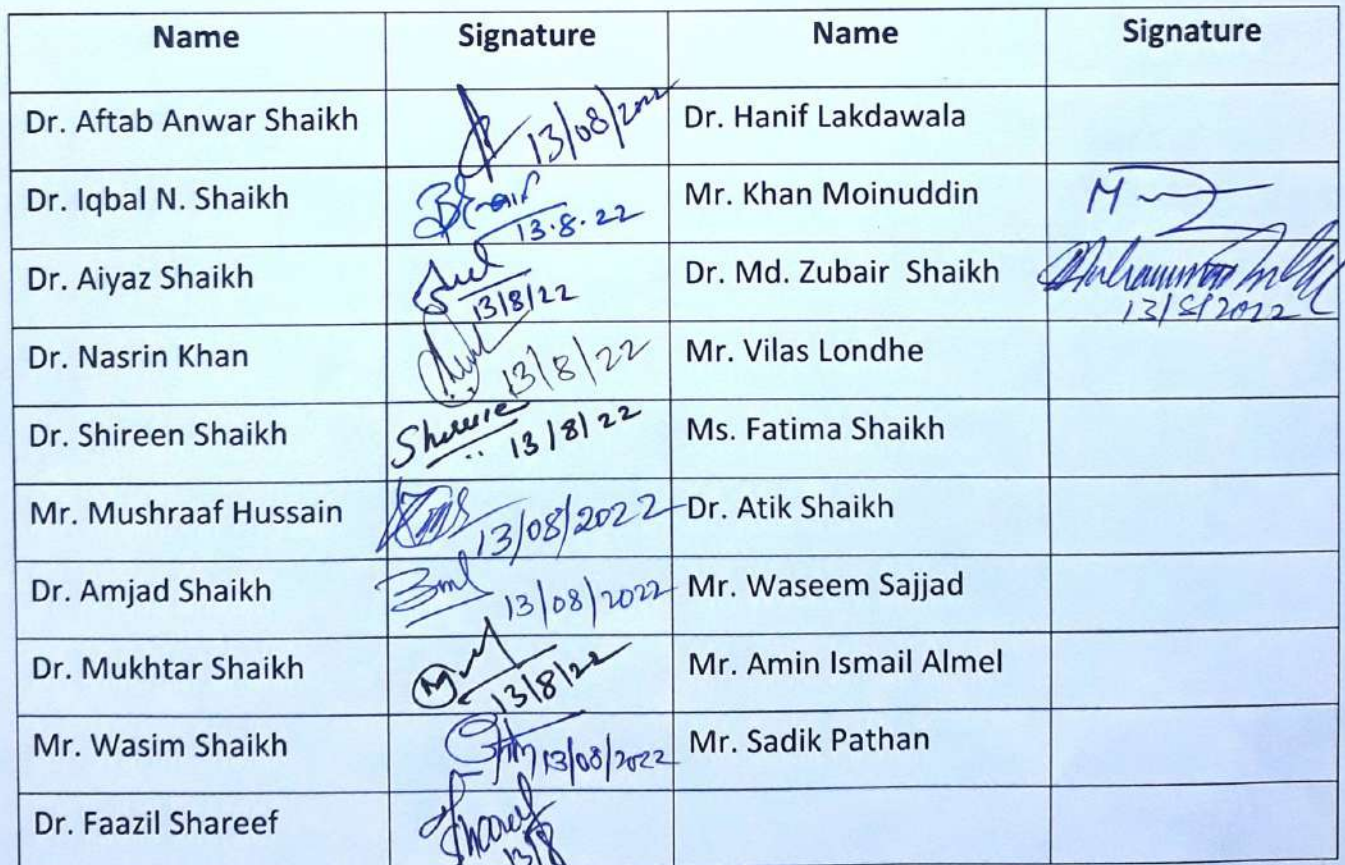 Name Signature Name Signature
Dr. Aftab Anwar Shaikh 13/08/2022 Dr. Hanif Lakdawala
Dr. Iqbal N. Shaikh 13.8.22 Mr. Khan Moinuddin
Dr. Aiyaz Shaikh 13/8/22 Dr. Md. Zubair Shaikh 13/8/2022
Dr. Nasrin Khan 13/8/22 Mr. Vilas Londhe
Dr. Shireen Shaikh 13/8/22 Ms. Fatima Shaikh
Mr. Mushraaf Hussain 13/08/2022 Dr. Atik Shaikh
Dr. Amjad Shaikh 13/08/2022 Mr. Waseem Sajjad
Dr. Mukhtar Shaikh 13/8/22 Mr. Amin Ismail Almel
Mr. Wasim Shaikh 13/08/2022 Mr. Sadik Pathan
Dr. Faazil Shareef Shareef 13/8